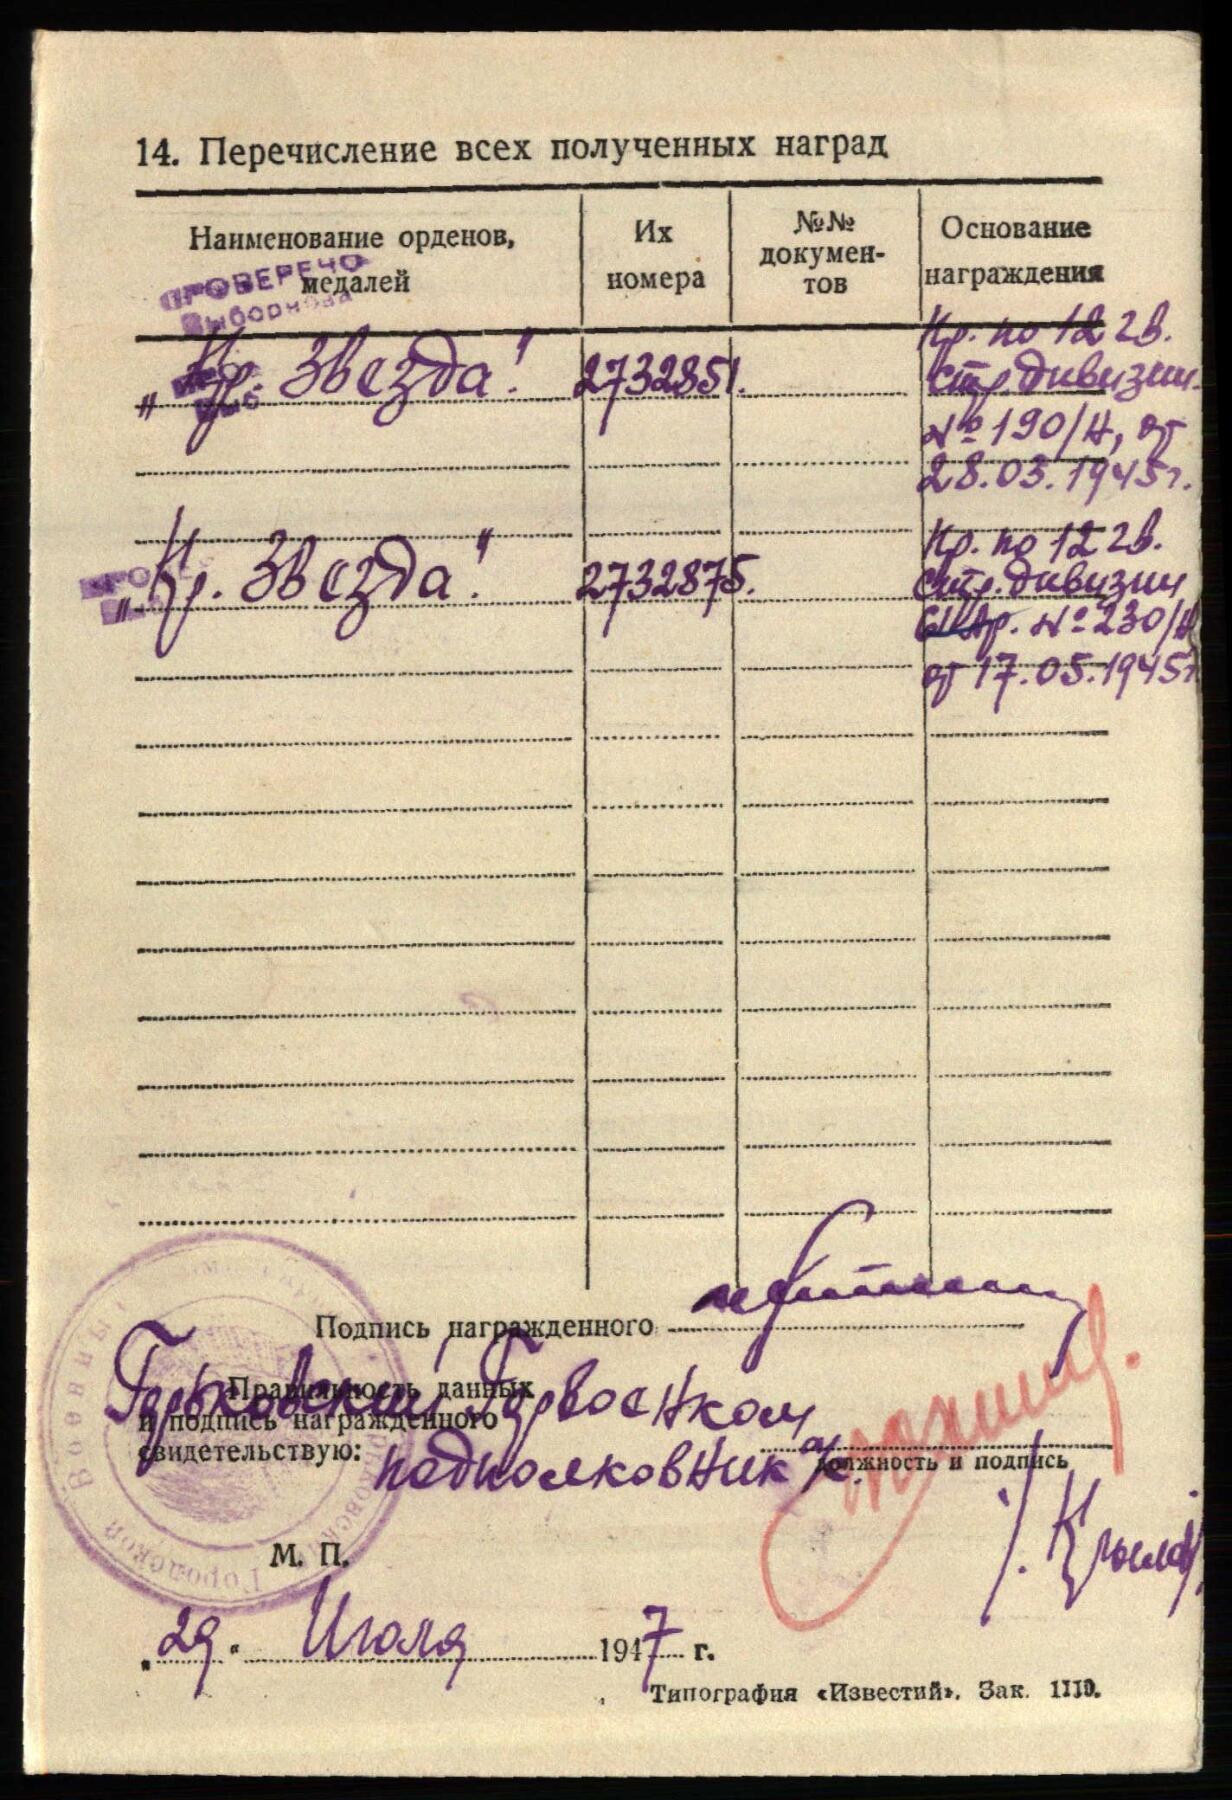 14. Перечисление всех полученных наград
Наименование орденов,
медалей
Их
номера
№№
докумен-
тов
Основание
награждения
ПРОВЕРЕНО
Выборнова
„Кр. Звезда". 2732851.
Пр. по 12 гв.
стр. дивизии
№ 190/н, от
28.03.1945г.
„Кр. Звезда". 2732875.
Пр. по 12 гв.
стр. дивизии
№ 230/н
от 17.05.1945г
Подпись награжденного
Правильность данных
и подпись награжденного
свидетельствую:
Горьковский Горвоенком
подполковник
должность и подпись
/. Крылов/
М. П.
Городской Военный
„29" Июля 1947 г.
Типография «Известий». Зак. 1110.